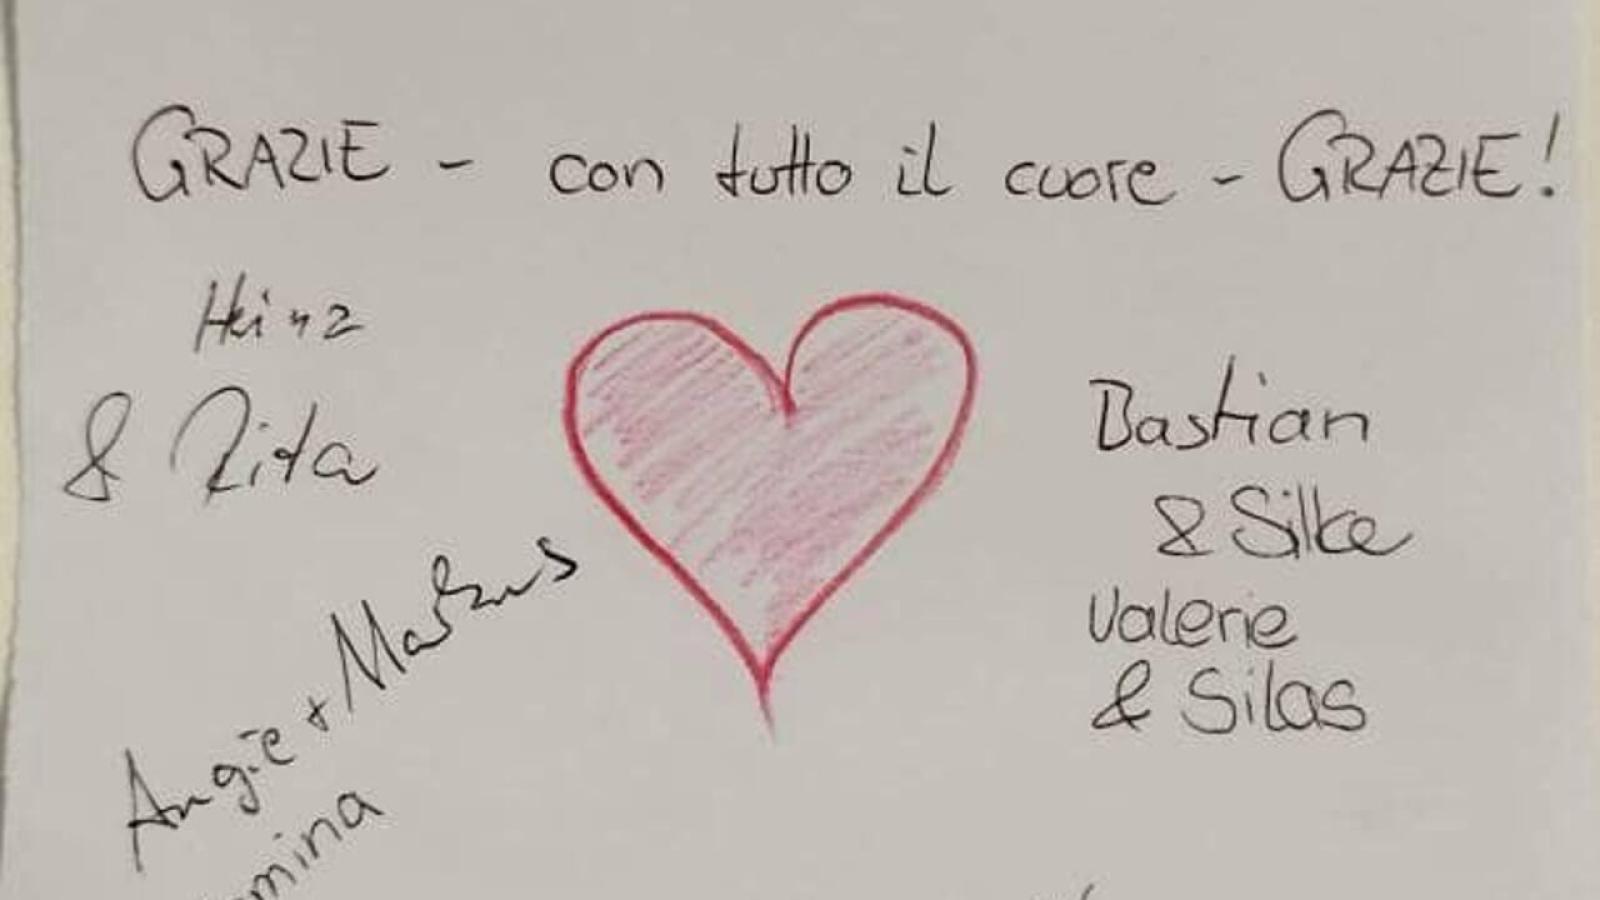 GRAZIE - con tutto il cuore - GRAZIE!
Heinz
& Rita
Bastian
& Silke
Valerie
& Silas
Angie + Markus
mina